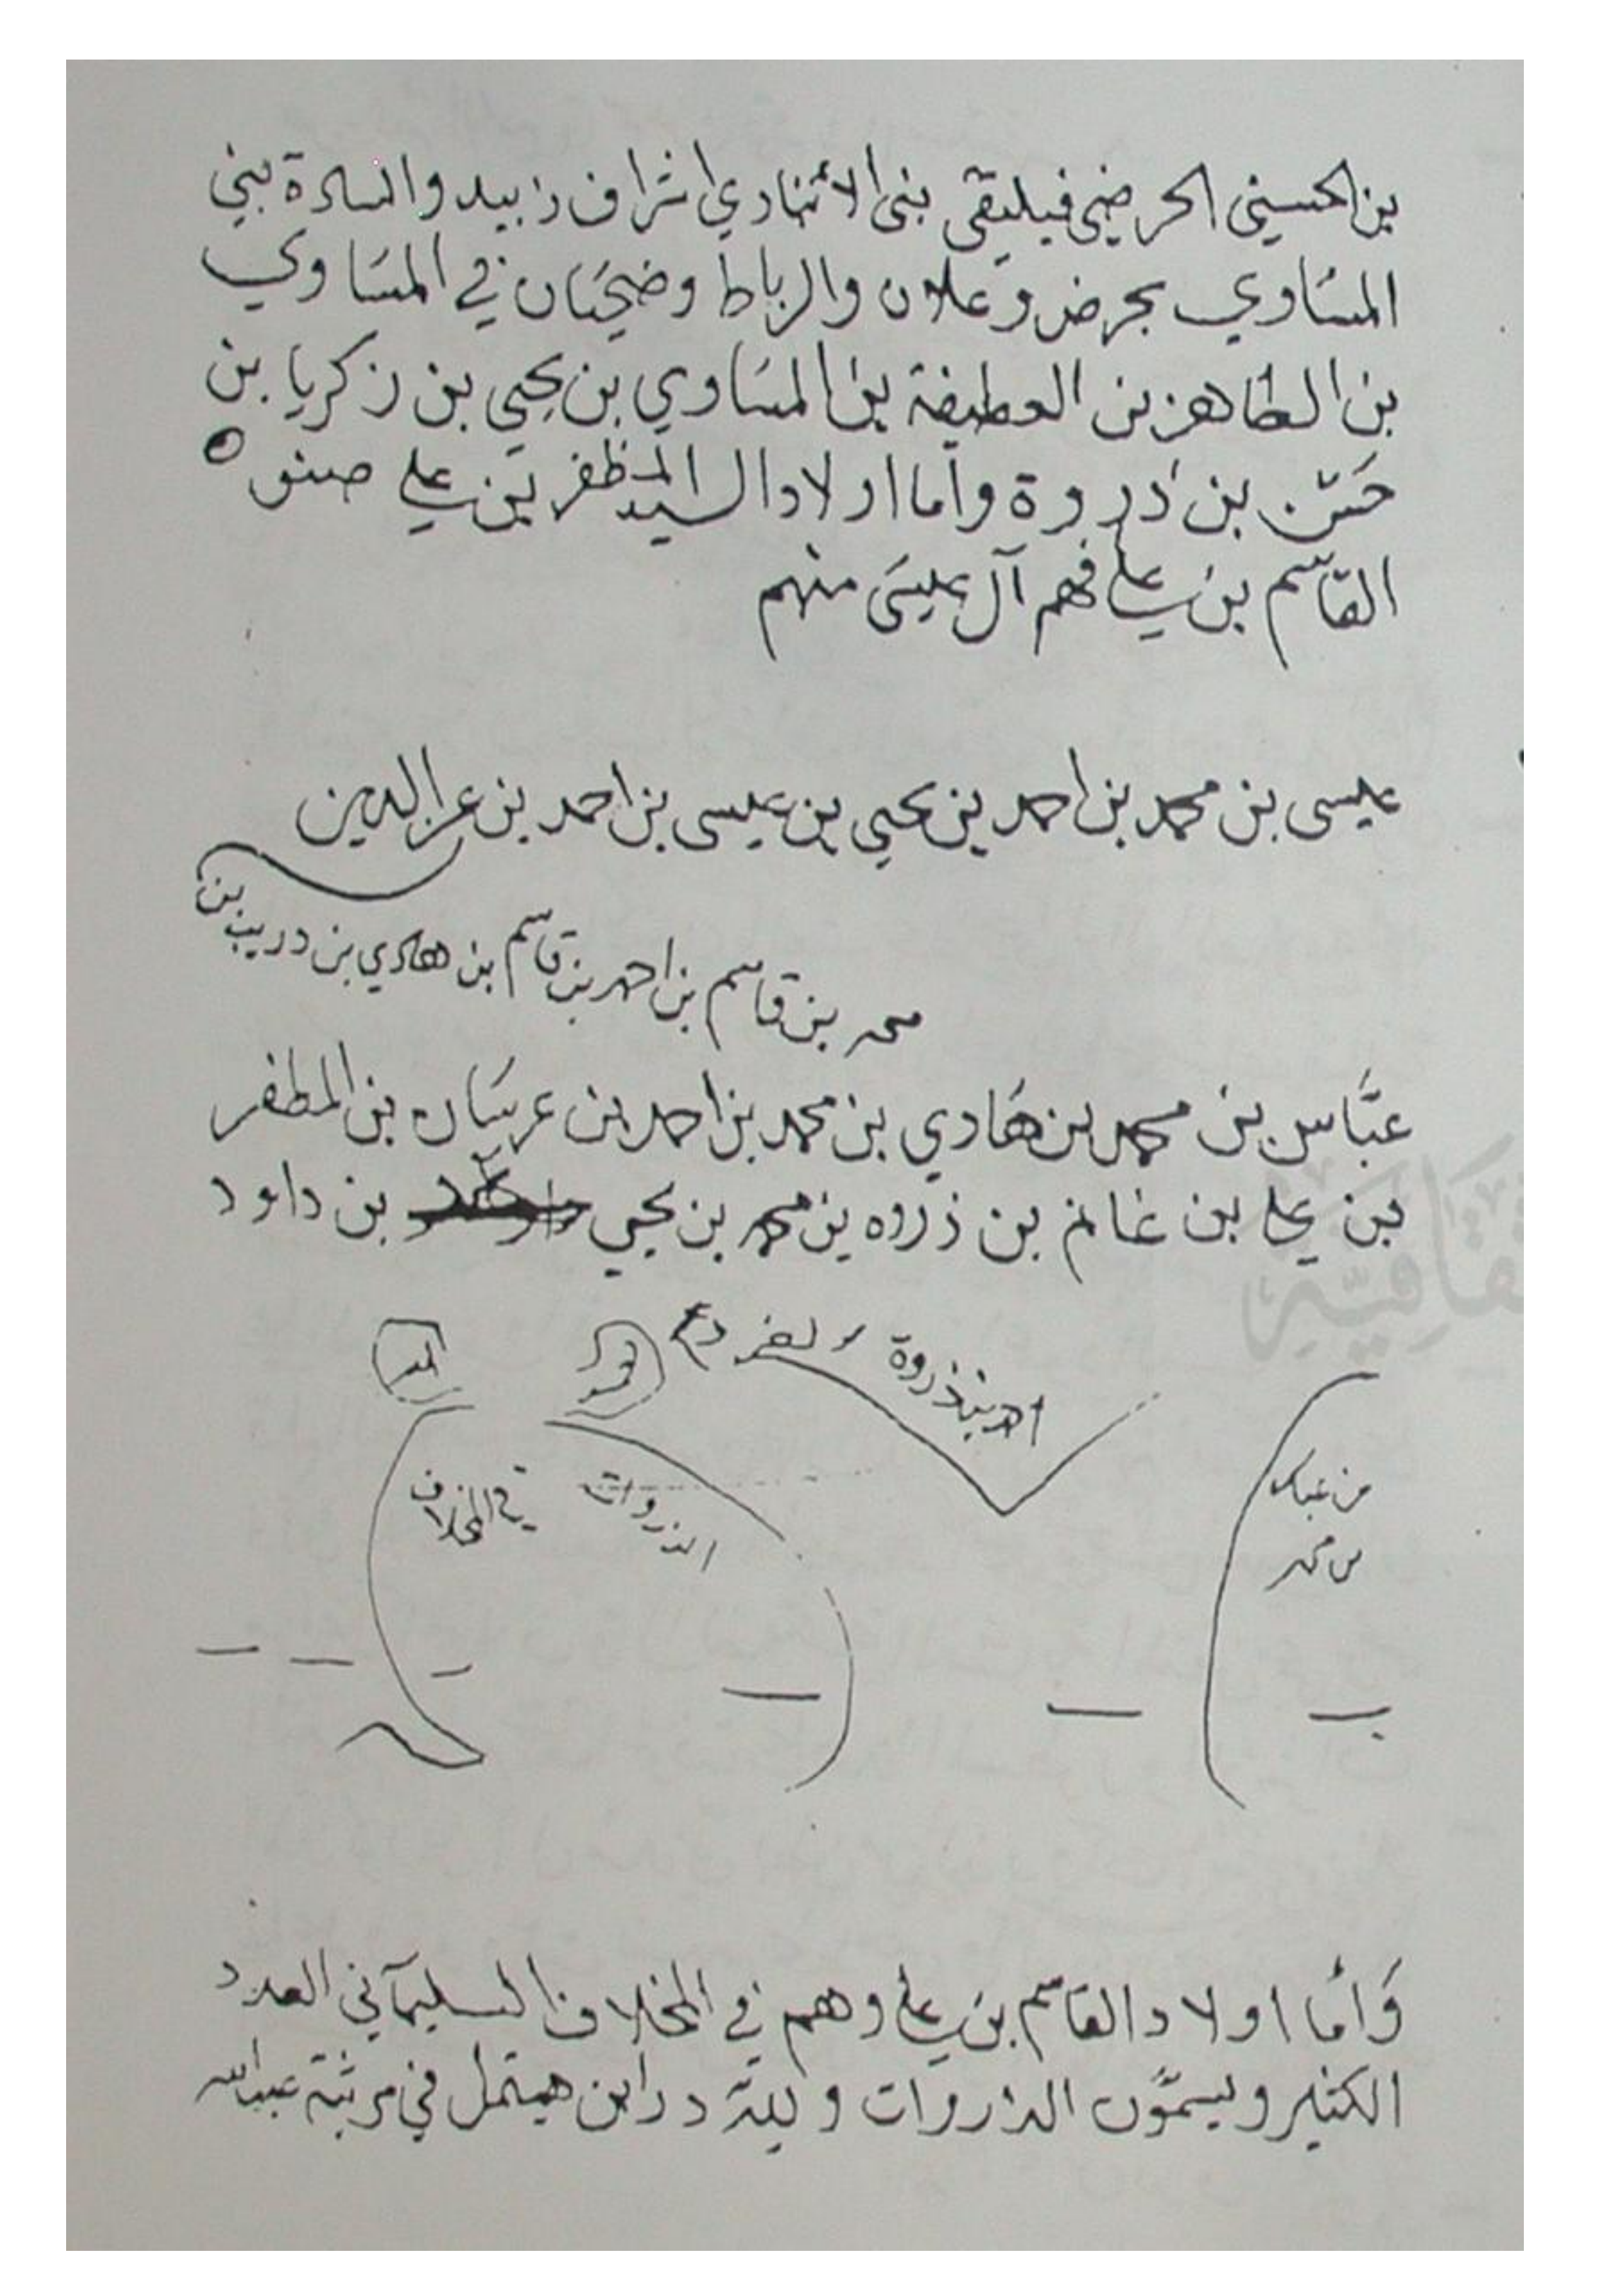 بن الحسيني الحرضي فيلتقي بني الأثنادي اشراف زبيد والسادة بني
المسَاوي بحرض وعلان والرباط وضحيَان في المسَاوي
بن الطاهر بن العطيفة بن المسَاوي بن يحيى بن زكريا بن
حسَن بن ذروة واما اولاد السيد المظفر بن علي صنو
القاسم بن علي فهم آل عيسَى منهم
عيسى بن محمد بن احمد بن يحيى بن عيسى بن احمد بن عز الدين
بن
محمد بن قاسم بن احمد بن قاسم بن هادي بن دريب
عبَّاس بن محمد بن هَادي بن محمد بن احمد بن عريشان بن المظفر
بن علي بن غانم بن ذروه بن محمد بن يحيى بن داود
ذروة
الذروات في المخلاف
من
بن محمد
وَامَّا اولاد القاسم بن علي وهم في المخلاف السليمَاني العدد
الكثير ويسمَّون الذروات ولله در ابن هيتمل في مرثية عبدالله